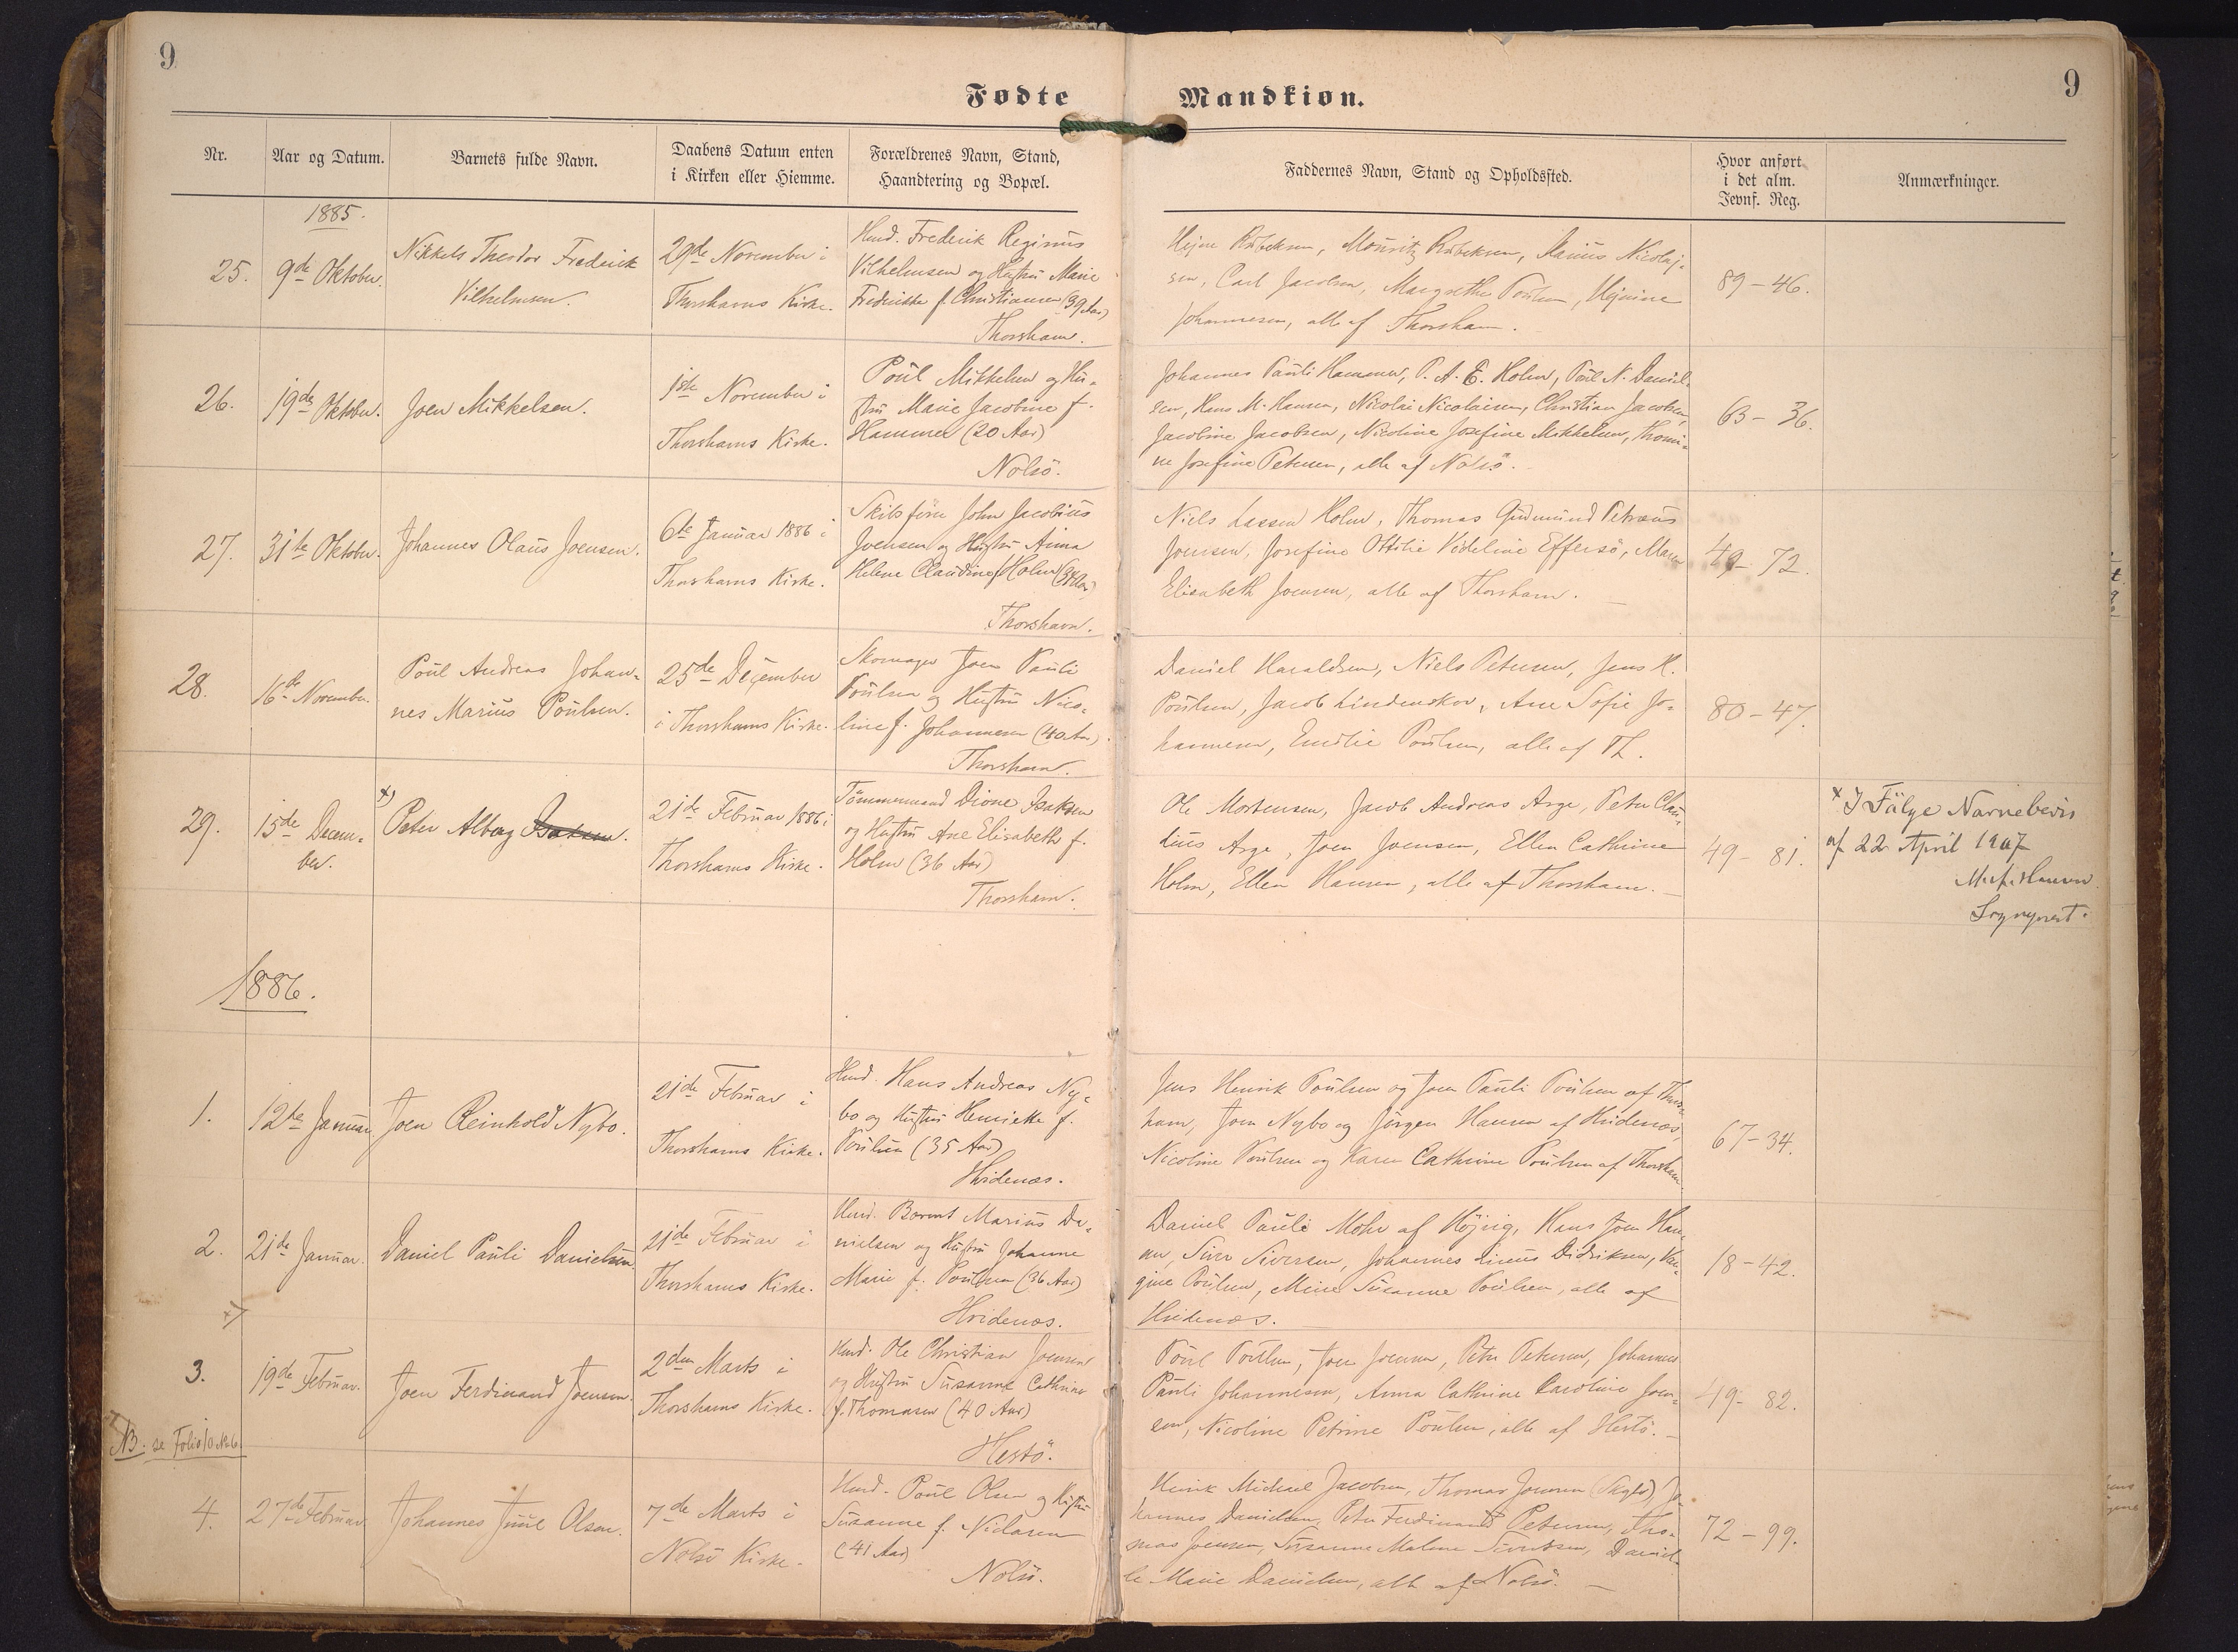 9
9
Fødte Mandkiøn.
Nr.
Aar og Datum.
Barnets fulde Navn.
Daabens Datum enten
i Kirken eller Hiemme.
Forældrenes Navn, Stand,
Haandtering og Bopæl.
Faddernes Navn, Stand og Opholdssted.
Hvor anført
i det alm.
Jevnf. Reg.
Anmærkninger.
1885.
25.
9de Oktober.
Nikkels Theodor Frederik
Vilhelmsen.
29de November i
Thorshavns Kirke.
Hmd. Frederik Reginus
Vilhelmsen og Hustru Marie
Frederikke f. Christiansen (39 Aar)
Thorshavn.
Mouritz Rubeksen, Darius Nicolaj-
sen, Carl Jacobsen, Margrethe Poulsen,
Johannesen, alle af Thorshavn.
89-46.
26.
19de Oktober.
Joen Mikkelsen.
1ste November i
Thorshavns Kirke.
Poul Mikkelsen og Hu-
stru Marie Jacobine f.
Hammer (20 Aar)
Nolsö.
Johannes Pauli Hammer, P. A. E. Holm, Poul N. Daniel-
sen, Hans M. Hansen, Nicolai Nicolaisen, Christian Jacobsen,
Jacobine Jacobsen, Nicoline Josefine Mikkelsen, Thomi-
ne Josefine Petersen, alle af Nolsö.
63-36.
27.
31te Oktober.
Johannes Olaus Joensen.
6te Januar 1886 i
Thorshavns Kirke.
Skibsförer John Jacobius
Joensen og Hustru Anna
Helene Claudine f. Holm (34 Aar)
Thorshavn.
Niels Lassen Holm, Thomas Gudmund Petræus
Joensen, Josefine Ottilie Videline Effersö, Maren
Elisabeth Joensen, alle af Thorshavn.
49-72.
28.
16de November.
Poul Andreas Johan-
nes Marius Poulsen.
25de December
i Thorshavns Kirke.
Skomager Joen Pauli
Poulsen og Hustru Nico-
line f. Johannesen (40 Aar).
Thorshavn.
Daniel Haraldsen, Niels Petersen, Jens H.
Poulsen, Jacob Lindenskov, Ane Sofie Jo-
hannesen, Emilie Poulsen, alle af Th.
80-47.
29.
15de Decem-
ber.
x)
Peter Alberg Isaksen.
21de Februar 1886 i
Thorshavns Kirke.
Tömmermand Dione Isaksen
og Hustru Ane Elisabeth f.
Holm (36 Aar)
Thorshavn.
Ole Mortensen, Jacob Andreas Arge, Peter Clau-
dius Arge, Joen Joensen, Ellen Cathrine
Holm, Ellen Hansen, alle af Thorshavn.
49-81.
x I Fölge Navnebevis
af 22 April 1907
Hansen
Sognepræst.
1886.
1.
12te Januar
Joen Reinhold Nybo.
21de Februar i
Thorshavns Kirke.
Hmd. Hans Andreas Ny-
bo og Hustru Henriette f.
Poulsen (35 Aar)
Hvidenæs.
Jens Henrik Poulsen og Joen Pauli Poulsen af Thors-
havn, Joen Nybo og Jörgen Hansen af Hvidenæs,
Nicoline Poulsen og Karen Cathrine Poulsen af Thorshavn.
67-34.
2.
21de Januar.
Daniel Pauli Danielsen.
21de Februar i
Thorshavns Kirke.
Hmd. Marius Da-
nielsen og Hustru Johanne
Marie f. Poulsen (36 Aar)
Hvidenæs.
Daniel Pauli Mohr af Höjvig, Hans Joen Han-
sen, Siversen, Johannes Didriksen,
Poulsen, Susanne Poulsen, alle af
Hvidenæs.
18-42.
x)
3.
19de Februar.
Joen Ferdinand Joensen.
2den Marts i
Thorshavns Kirke.
Hmd. Ole Christian Joensen
og Hustru Susanne Cathrine
f. Thomasen (40 Aar)
Hestö.
Poul Poulsen, Joen Joensen, Peter Petersen, Johannes
Pauli Johannesen, Anna Cathrine Caroline Joen-
sen, Nicoline Petrine Poulsen, alle af Hestö.
49-82.
NB. se Folio 10 No 6.
4.
27de Februar
Johannes Juul Olsen.
7de Marts i
Nolsö Kirke.
Hmd. Poul Olsen og Hustru
Susanne f. Niclasen
(41 Aar)
Nolsö.
Henrik Michael Jacobsen, Thomas Joensen Jo-
hannes Danielsen, Peter Ferdinand Petersen, Tho-
mas Joensen, Susanne Malene Daniel-
le Marie Danielsen, alle af Nolsö.
72-99.